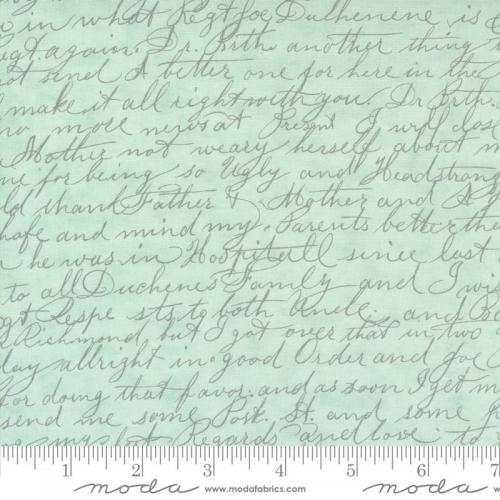 in what Regt Joe Duchenene is
Regt again. Dr. Brthr another thing
not send A better one for here in the
make it all right with you. Dr Brthr
no more news at Present I will close
Mother not weary herself about m
me for being so Ugly and Headstrong
ld thank Father & Mother and A
hafe and mind my Parents better tha
he was in Hospitall since last
to all Duchenes Family and I wis
Respe sts to both Uncle. and
Richmond but I got over that in two
day allright in good Order and Joe
for doing that favor. and as soon I get m
send me some Post. St. and some
my Regards and love to
1 2 3 4 5 6 7
moda www.modafabrics.com moda